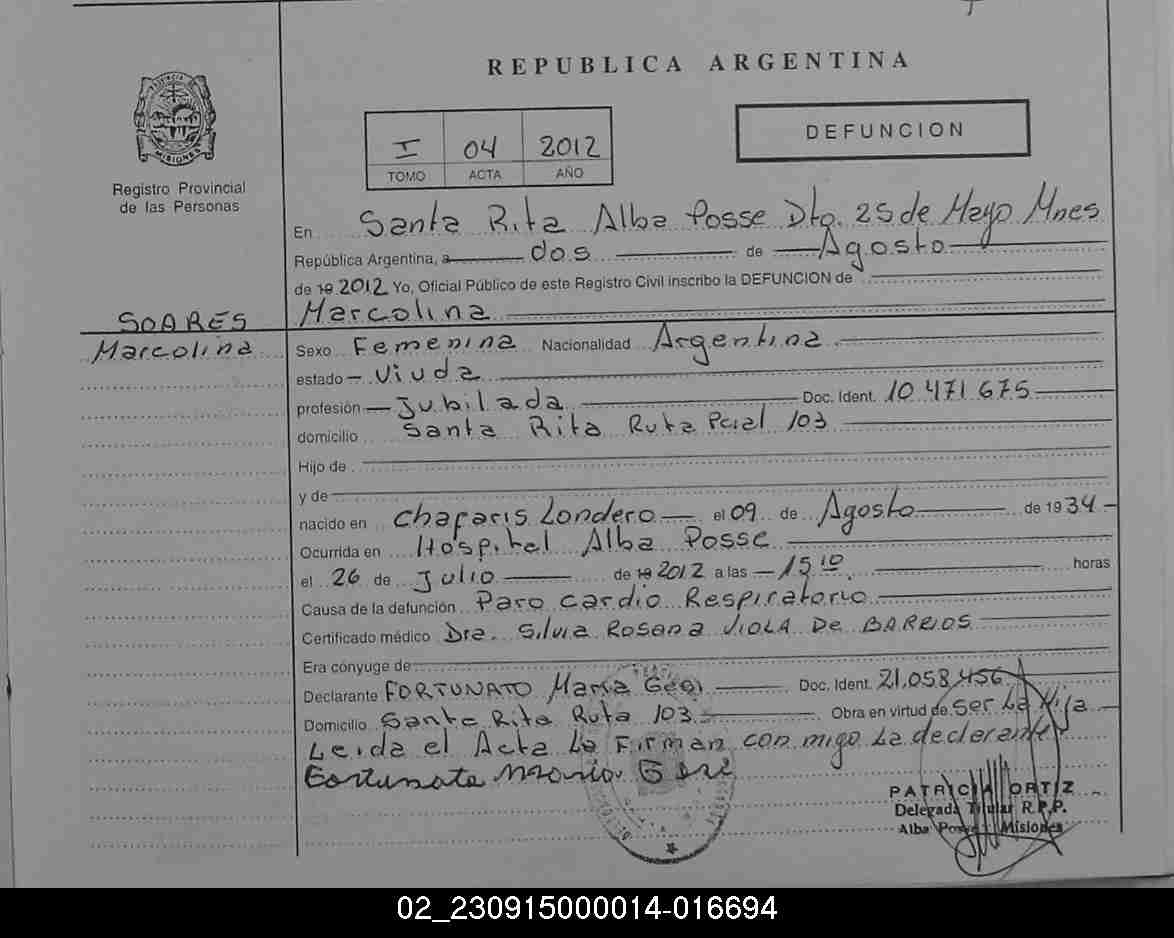 REPUBLICA ARGENTINA
PROVINCIA DE
MISIONES
Registro Provincial
de las Personas
I 04 2012
TOMO ACTA AÑO
DEFUNCION
En Santa Rita Alba Posse Dto. 25 de Mayo Mnes
República Argentina, a dos de Agosto
de 19 2012 Yo, Oficial Público de este Registro Civil inscribo la DEFUNCION de
SOARES
Marcolina
Marcolina
Sexo Femenina Nacionalidad Argentina
estado Viuda
profesión Jubilada Doc. Ident. 10.471.675
domicilio Santa Rita Ruta Pcial 103
Hijo de
y de
nacido en Chafaris Londero el 09 de Agosto de 1934
Ocurrida en Hospital Alba Posse
el 26 de Julio de 19 2012 a las 15 10 horas
Causa de la defunción Paro Cardio Respiratorio
Certificado médico Dra. Silvia Rosana VIOLA De BARRIOS
Era cónyuge de
Declarante FORTUNATO Maria Geni Doc. Ident. 21.058.456
Domicilio Santa Rita Ruta 103 Obra en virtud de Ser La Hija
Leida el Acta La Firman con migo La declarante
Fortunato Maria Geni
PATRICIA ORTIZ
Delegada Titular R.P.P.
Alba Posse - Misiones
02_230915000014-016694